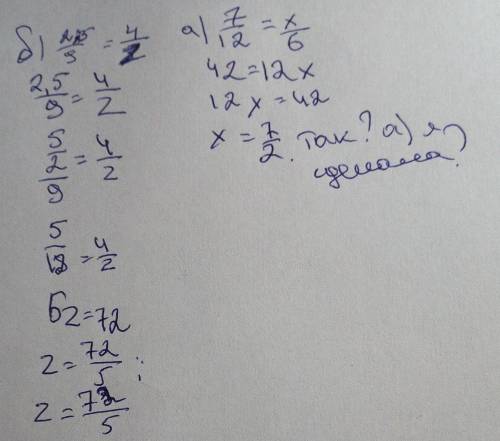 б) 2,5/9 = 4/z
2,5/9 = 4/z
5/2/9 = 4/z
5/18 = 4/z
5z = 72
z = 72/5 ;
z = 72/5
а) 7/12 = x/6
42 = 12x
12x = 42
x = 7/2. Так? а) я
сделала?